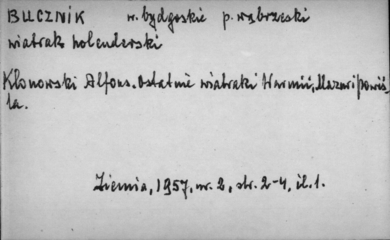 BUCZNIK w. bydgoskie p. wąbrzeski
wiatrak holenderski
Kłonowski Alfons. Ostatnie wiatraki Warmii, Mazur i Powiś-
la.
Ziemia, 1957, nr. 2, str. 2-4, il. 1.